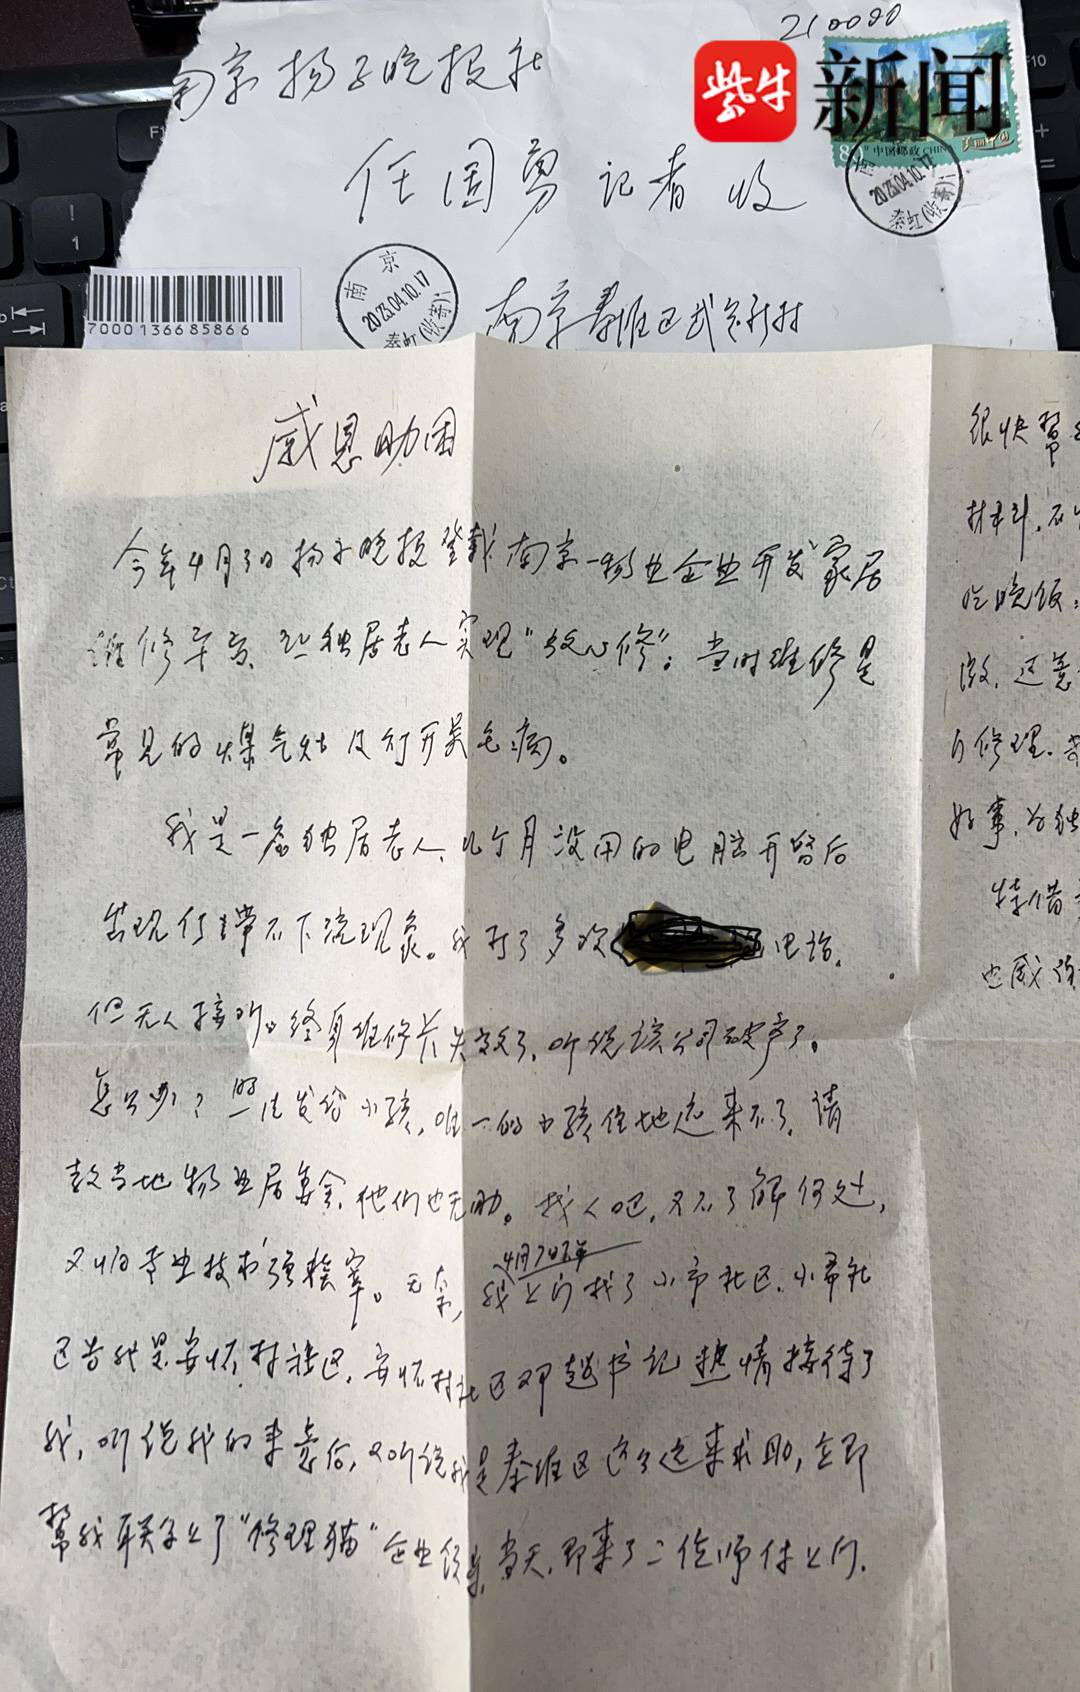 210000
南京扬子晚报社
紫牛
新闻
任国勇 记者 收
80 中国邮政 CHINA
美丽中国
南
2023.04.10.17
秦虹(收寄)
南京
2023.04.10.17
秦虹(收寄)
南京秦淮区武定新村
7000136685866
感恩助困
今年4月3日扬子晚报登载南京一物业企业开发"家居
维修平台,让独居老人实现"放心修"。当时维修是
常见的煤气灶及灯开关毛病。
我是一名独居老人,几个月没用的电脑开启后
出现 不下流现象。我打了多次 电话,
但无人接听。终身维修卡失效了,听说该公司破产了。
怎么办?照片发给小孩,唯一的小孩住地远来不了,请
教当地物业居委会,他们也无助。找人吧,又不了解何处,
又怕专业技术强 。无奈,我上门找了小市社区,小市社
4月7日下午
区告我是安怀村社区,安怀村社区邓越书记热情接待了
我,听说我的来意后,又听说我是秦淮区这么远来求助,立即
帮我联系上了"修理猫"企业 ,当天,即来了二位师付上门,
很快帮
材料,不
吃晚饭
激,这意
的修理,
好事,为独
特借
也感谢